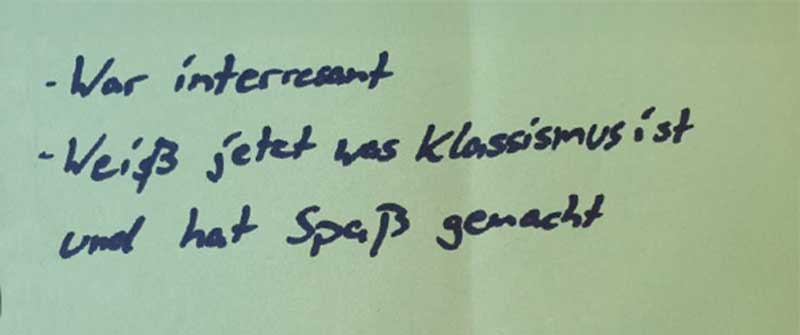 - War interresant
- Weiß jetzt was Klassismus ist
und hat Spaß gemacht